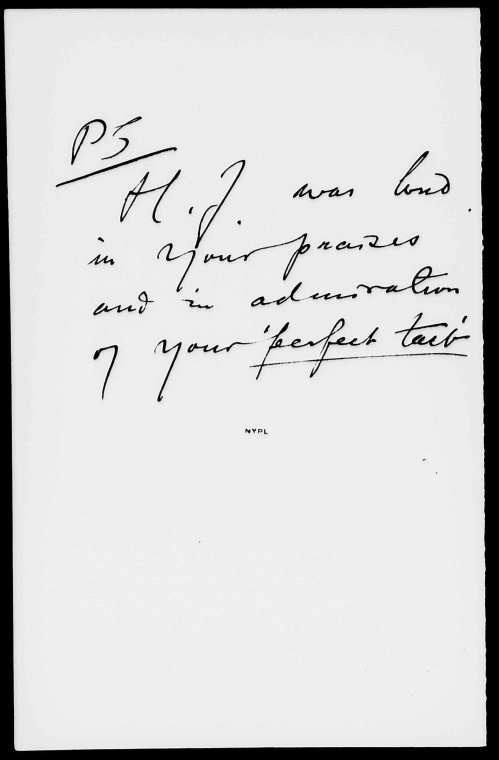 PS
H.J. was loud
in your praises
and in admiration
of your 'perfect tact'
NYPL